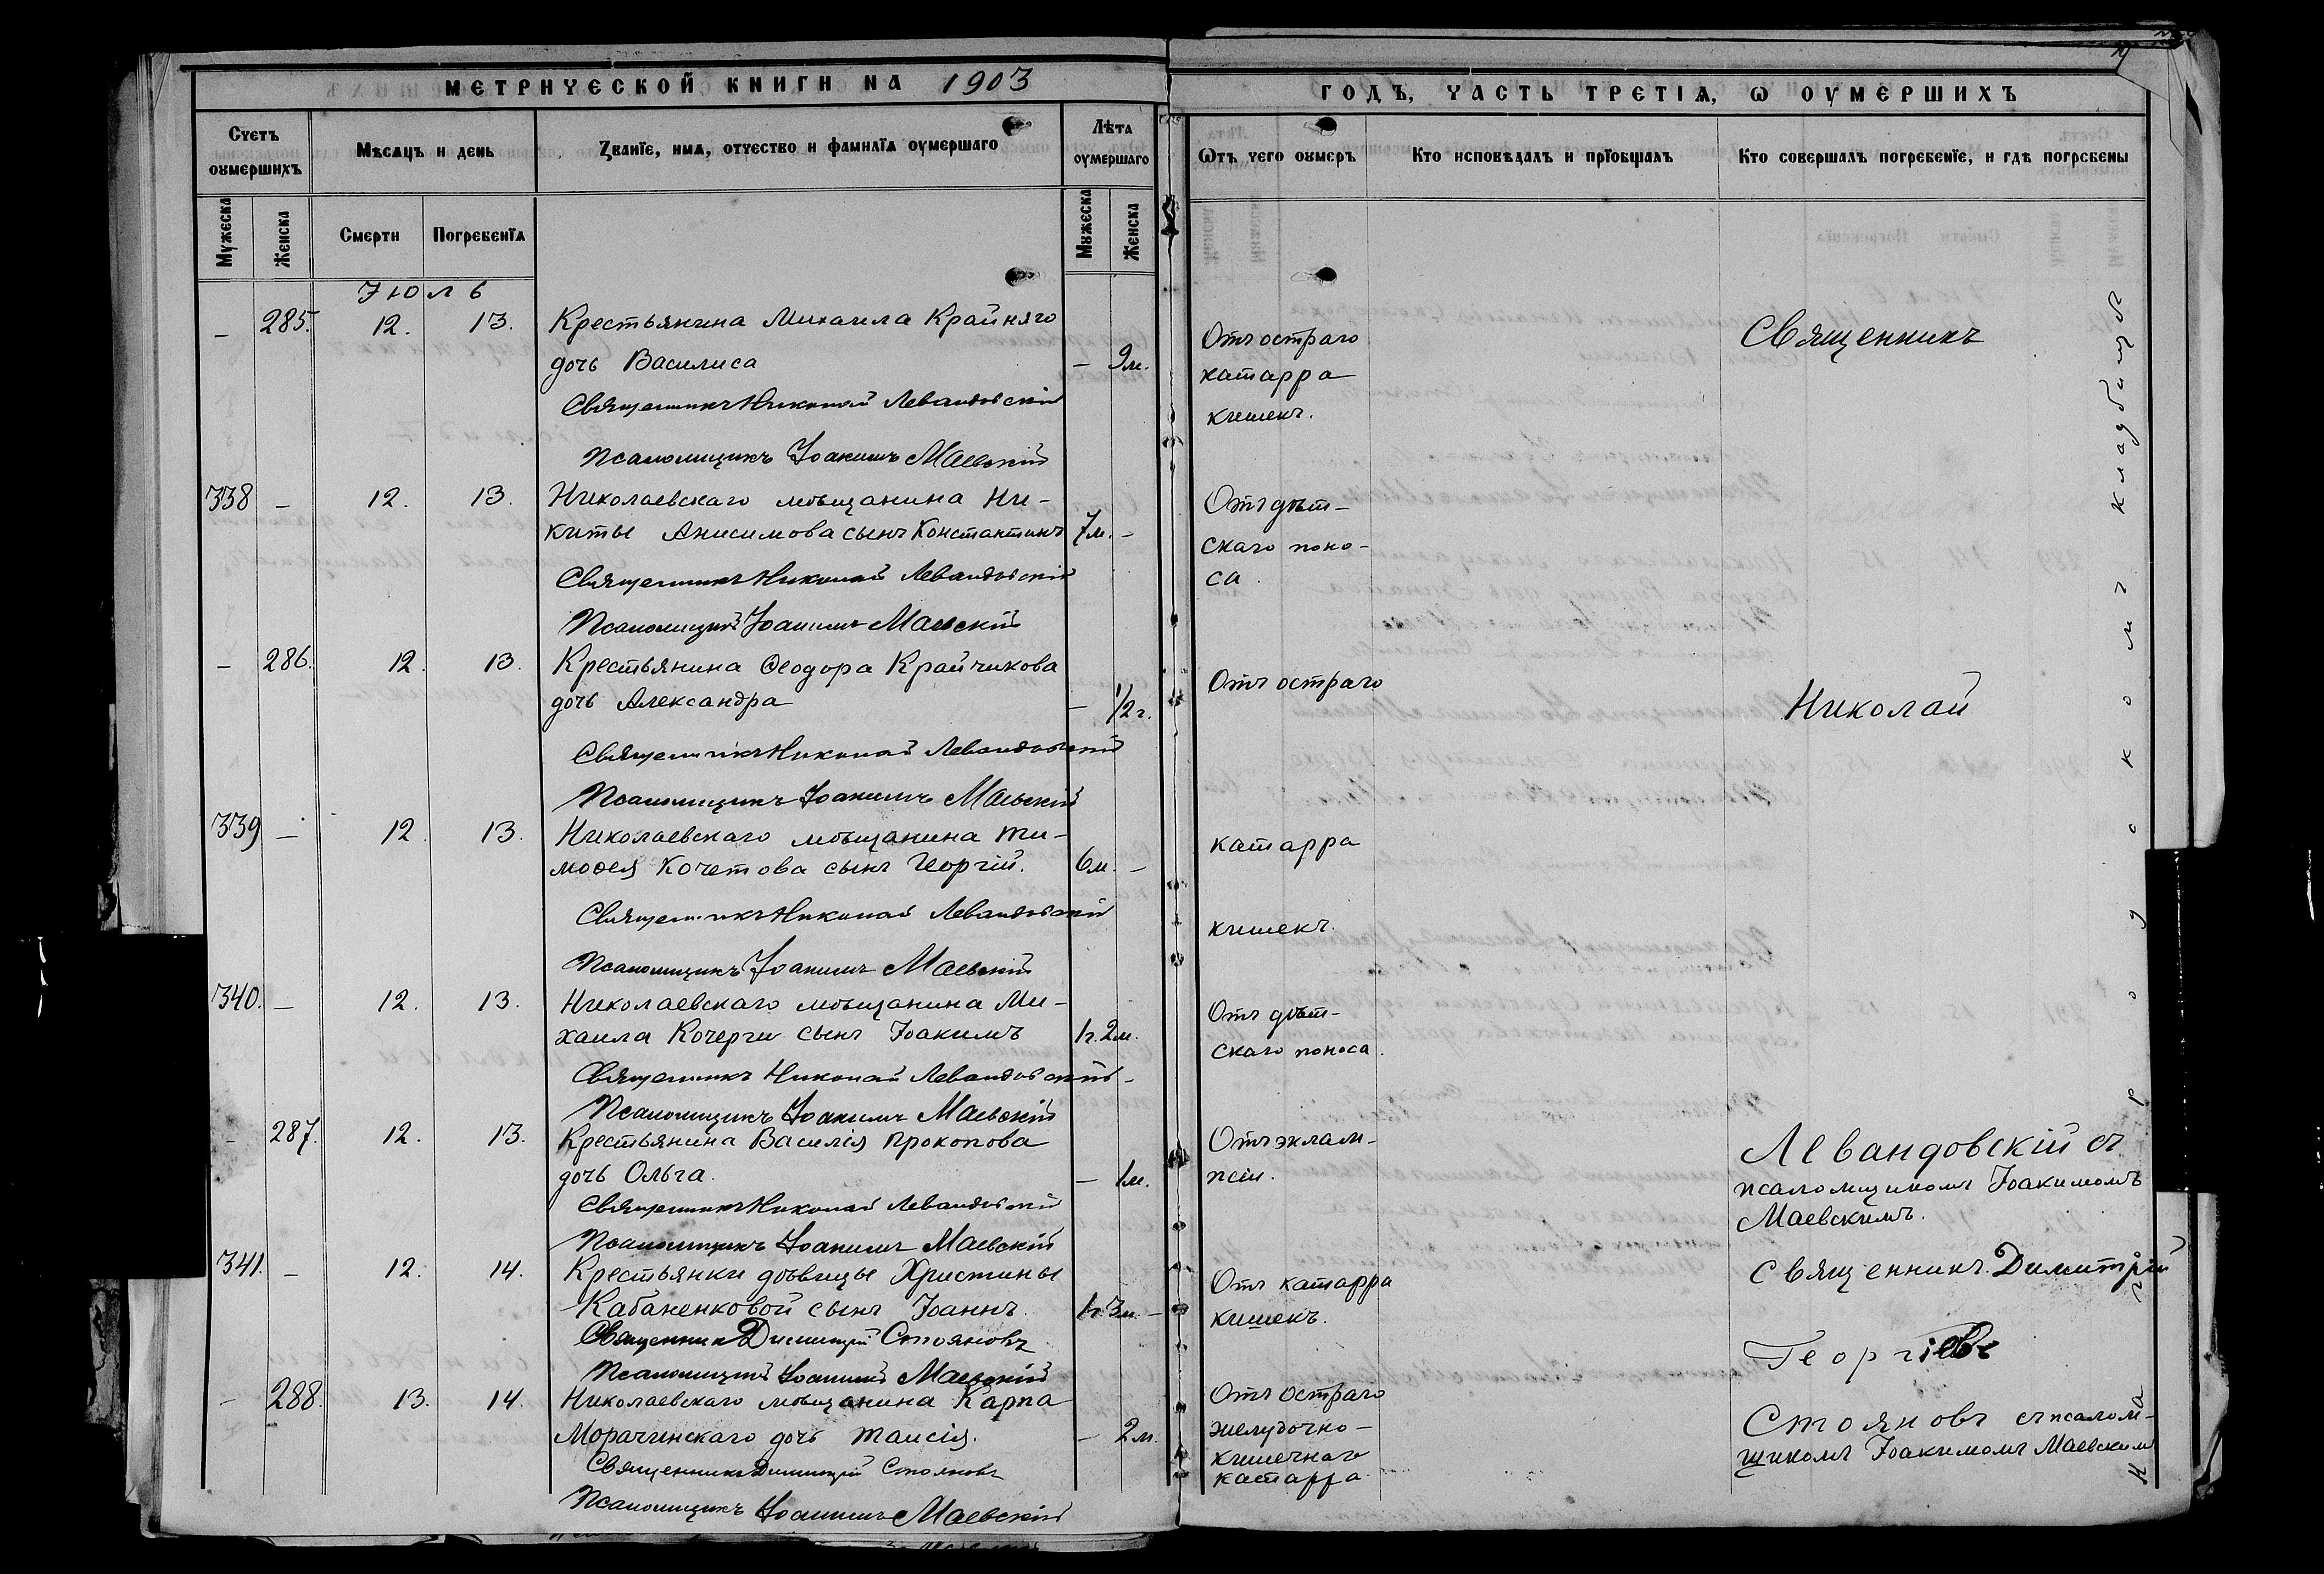 МЕТРИЧЕСКОЙ КНИГИ НА 1903
Счетъ оумершихъ
Мѣсяцъ и день
Званїе, имѧ, отчество и фамилїѧ оумершаго
Лѣта оумершаго
Мужеска
Женска
Смерти
Погребенїѧ
Мужеска
Женска
Іюль
– 285. 12. 13. Крестьянина Михаила Крайняго
дочь Василиса – 9 м.
Священникъ Николай Левандовскій
Псаломщикъ Іоакимъ Маевскій
338 – 12. 13. Николаевскаго мѣщанина Ни-
киты Анисимова сынъ Константинъ 7 м. –
Священникъ Николай Левандовскій
Псаломщикъ Іоакимъ Маевскій
– 286. 12. 13. Крестьянина Ѳеодора Крайчикова
дочь Александра – 1/2 г.
Священникъ Николай Левандовскій
Псаломщикъ Іоакимъ Маевскій
339 – 12. 13. Николаевскаго мѣщанина Ти-
моѳея Кочетова сынъ Георгій. 6 м. –
Священникъ Николай Левандовскій
Псаломщикъ Іоакимъ Маевскій
340. – 12. 13. Николаевскаго мѣщанина Ми-
хаила Кочерги сынъ Іоакимъ 1 г. 2 м.
Священникъ Николай Левандовскій –
Псаломщикъ Іоакимъ Маевскій
– 287. 12. 13. Крестьянина Василія Прокопова
дочь Ольга. – 1 м.
Священникъ Николай Левандовскій
Псаломщикъ Іоакимъ Маевскій
341. – 12. 14. Крестьянки дѣвицы Христины
Кабаненковой сынъ Іоаннъ. 1 г. 3 м. –
Священникъ Димитрій Стояновъ
Псаломщикъ Іоакимъ Маевскій
– 288. 13. 14. Николаевскаго мѣщанина Карпа
Морачинскаго дочь Таисія. – 2 м.
Священникъ Димитрій Стояновъ
Псаломщикъ Іоакимъ Маевскій
ГОДЪ, ЧАСТЬ ТРЕТІѦ, Ѡ ОУМЕРШИХЪ
Ѿтъ чего оумеръ
Кто исповѣдалъ и прїобщалъ
Кто совершалъ погребенїе, и гдѣ погребены
Отъ остраго
катарра
кишекъ.
Отъ дѣт-
скаго поно-
са.
Отъ остраго
катарра
кишекъ.
Отъ дѣт-
скаго поноса.
Отъ эклам-
псіи.
Отъ катарра
кишекъ.
Отъ остраго
желудочно-
кишечнаго
катарра.
Священникъ
Николай
Левандовскій съ
псаломщикомъ Іоакимомъ
Маевскимъ.
Священникъ Димитрій
Георгіевъ
Стояновъ съ псалом-
щикомъ Іоакимомъ Маевскимъ
На городскомъ кладбищѣ